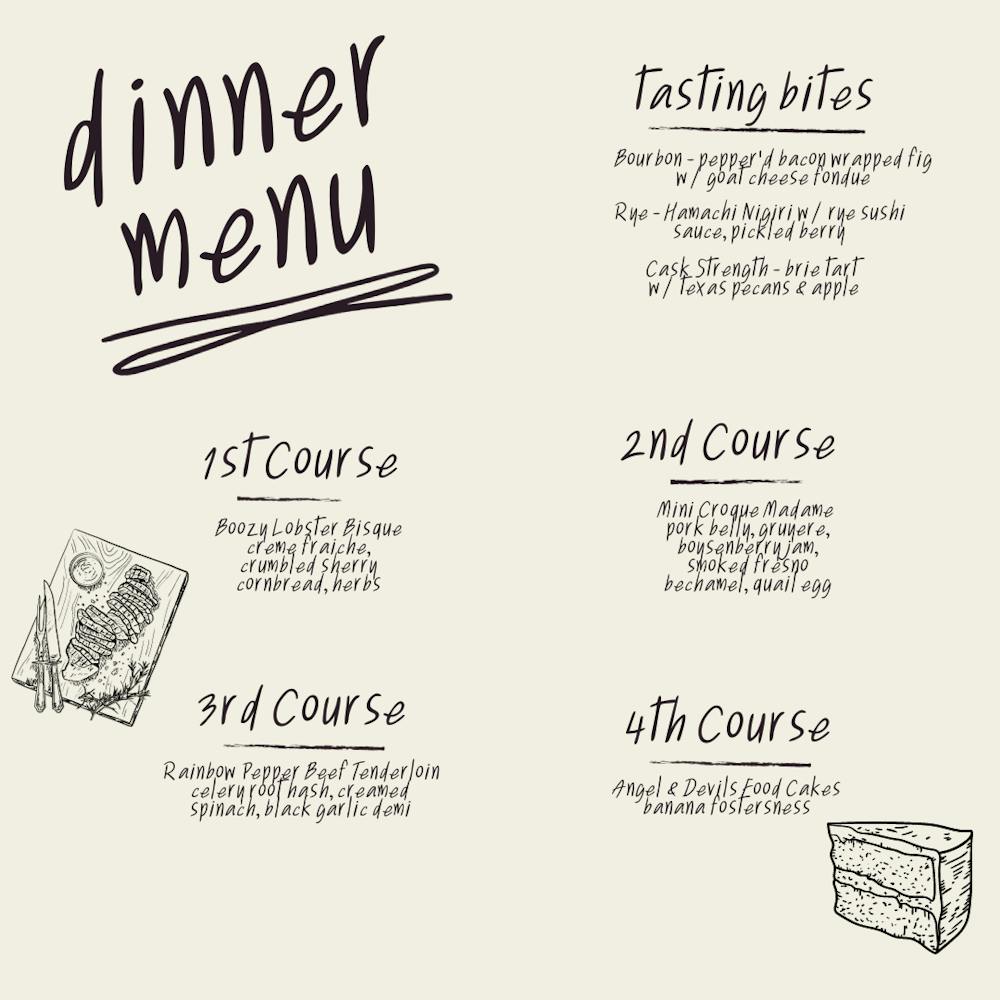 dinner
menu
tasting bites
Bourbon - pepper'd bacon wrapped fig
w/ goat cheese fondue
Rye - Hamachi Nigiri w/ rye sushi
sauce, pickled berry
Cask Strength - brie tart
w/ Texas pecans & apple
1st Course
Boozy Lobster Bisque
creme fraiche,
crumbled sherry
cornbread, herbs
2nd Course
Mini Croque Madame
pork belly, gruyere,
boysenberry jam,
smoked fresno
bechamel, quail egg
3rd Course
Rainbow Pepper Beef Tenderloin
celery root hash, creamed
spinach, black garlic demi
4th Course
Angel & Devils Food Cakes
banana fostersness